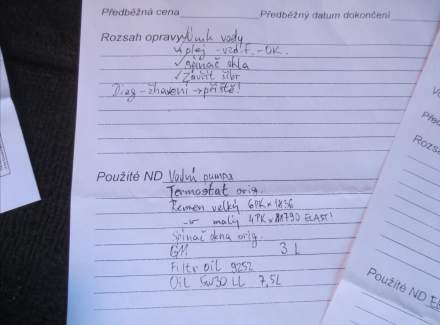 Předběžná cena
Předběžný datum dokončení
Rozsah opravy Únik vody
olej - vzd.f. - OK.
✓ spínač skla
✓ Zavřít šíbr
Diag - žhavení → příště!
Použité ND Vodní pumpa
Termostat orig.
Řemen velký 6PK x 1836
-"- malý 4PK x 790 ELAST!
Spínač okna orig.
G11 3 L
Filtr oil 9252
Oil 5W30 LL 7,5L
Použité ND
Rozs